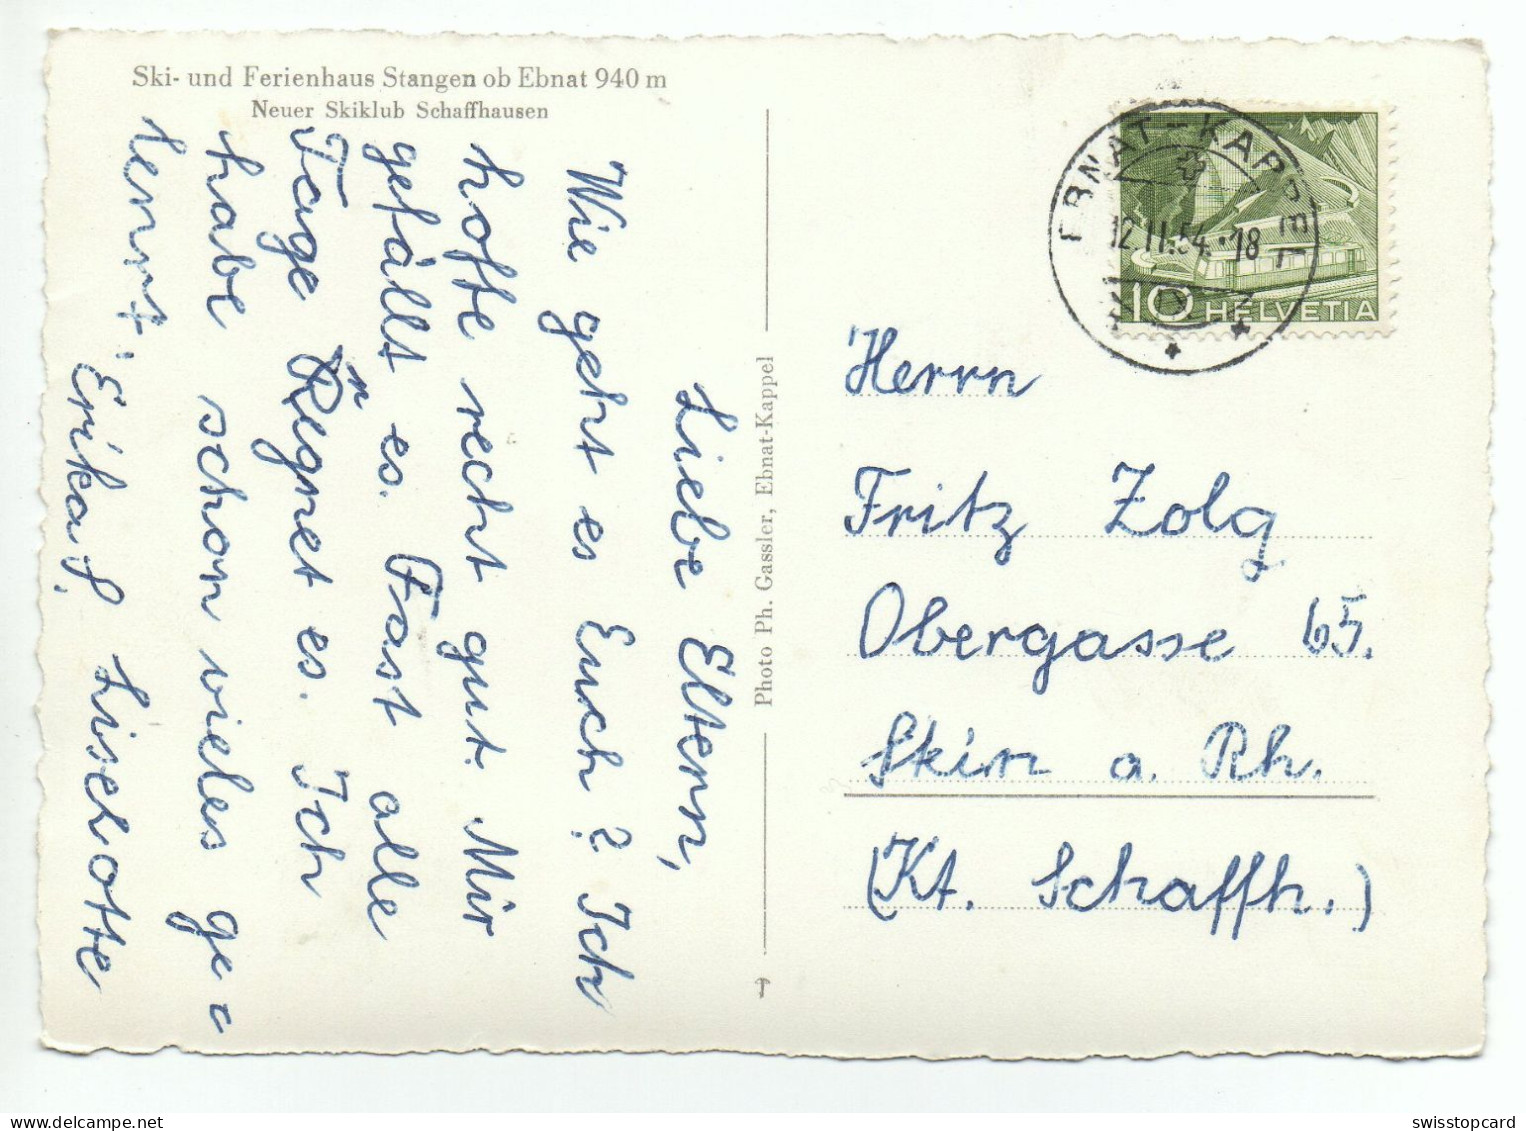 Ski- und Ferienhaus Stangen ob Ebnat 940 m
Neuer Skiklub Schaffhausen
Liebe Eltern,
Wie geht es Euch? Ich
hoffe recht gut. Mir
gefällt es. Fast alle
Tage Regnet es. Ich
habe schon vieles ge=
lernt.
Erika. Liselotte
Photo Ph. Gassler, Ebnat-Kappel
EBNAT-KAPPEL
12.II.54.-18
10 HELVETIA
Herrn
Fritz Zolg
Obergasse 65.
a. Rh.
(Kt. Schaffh.)
swisstopcard